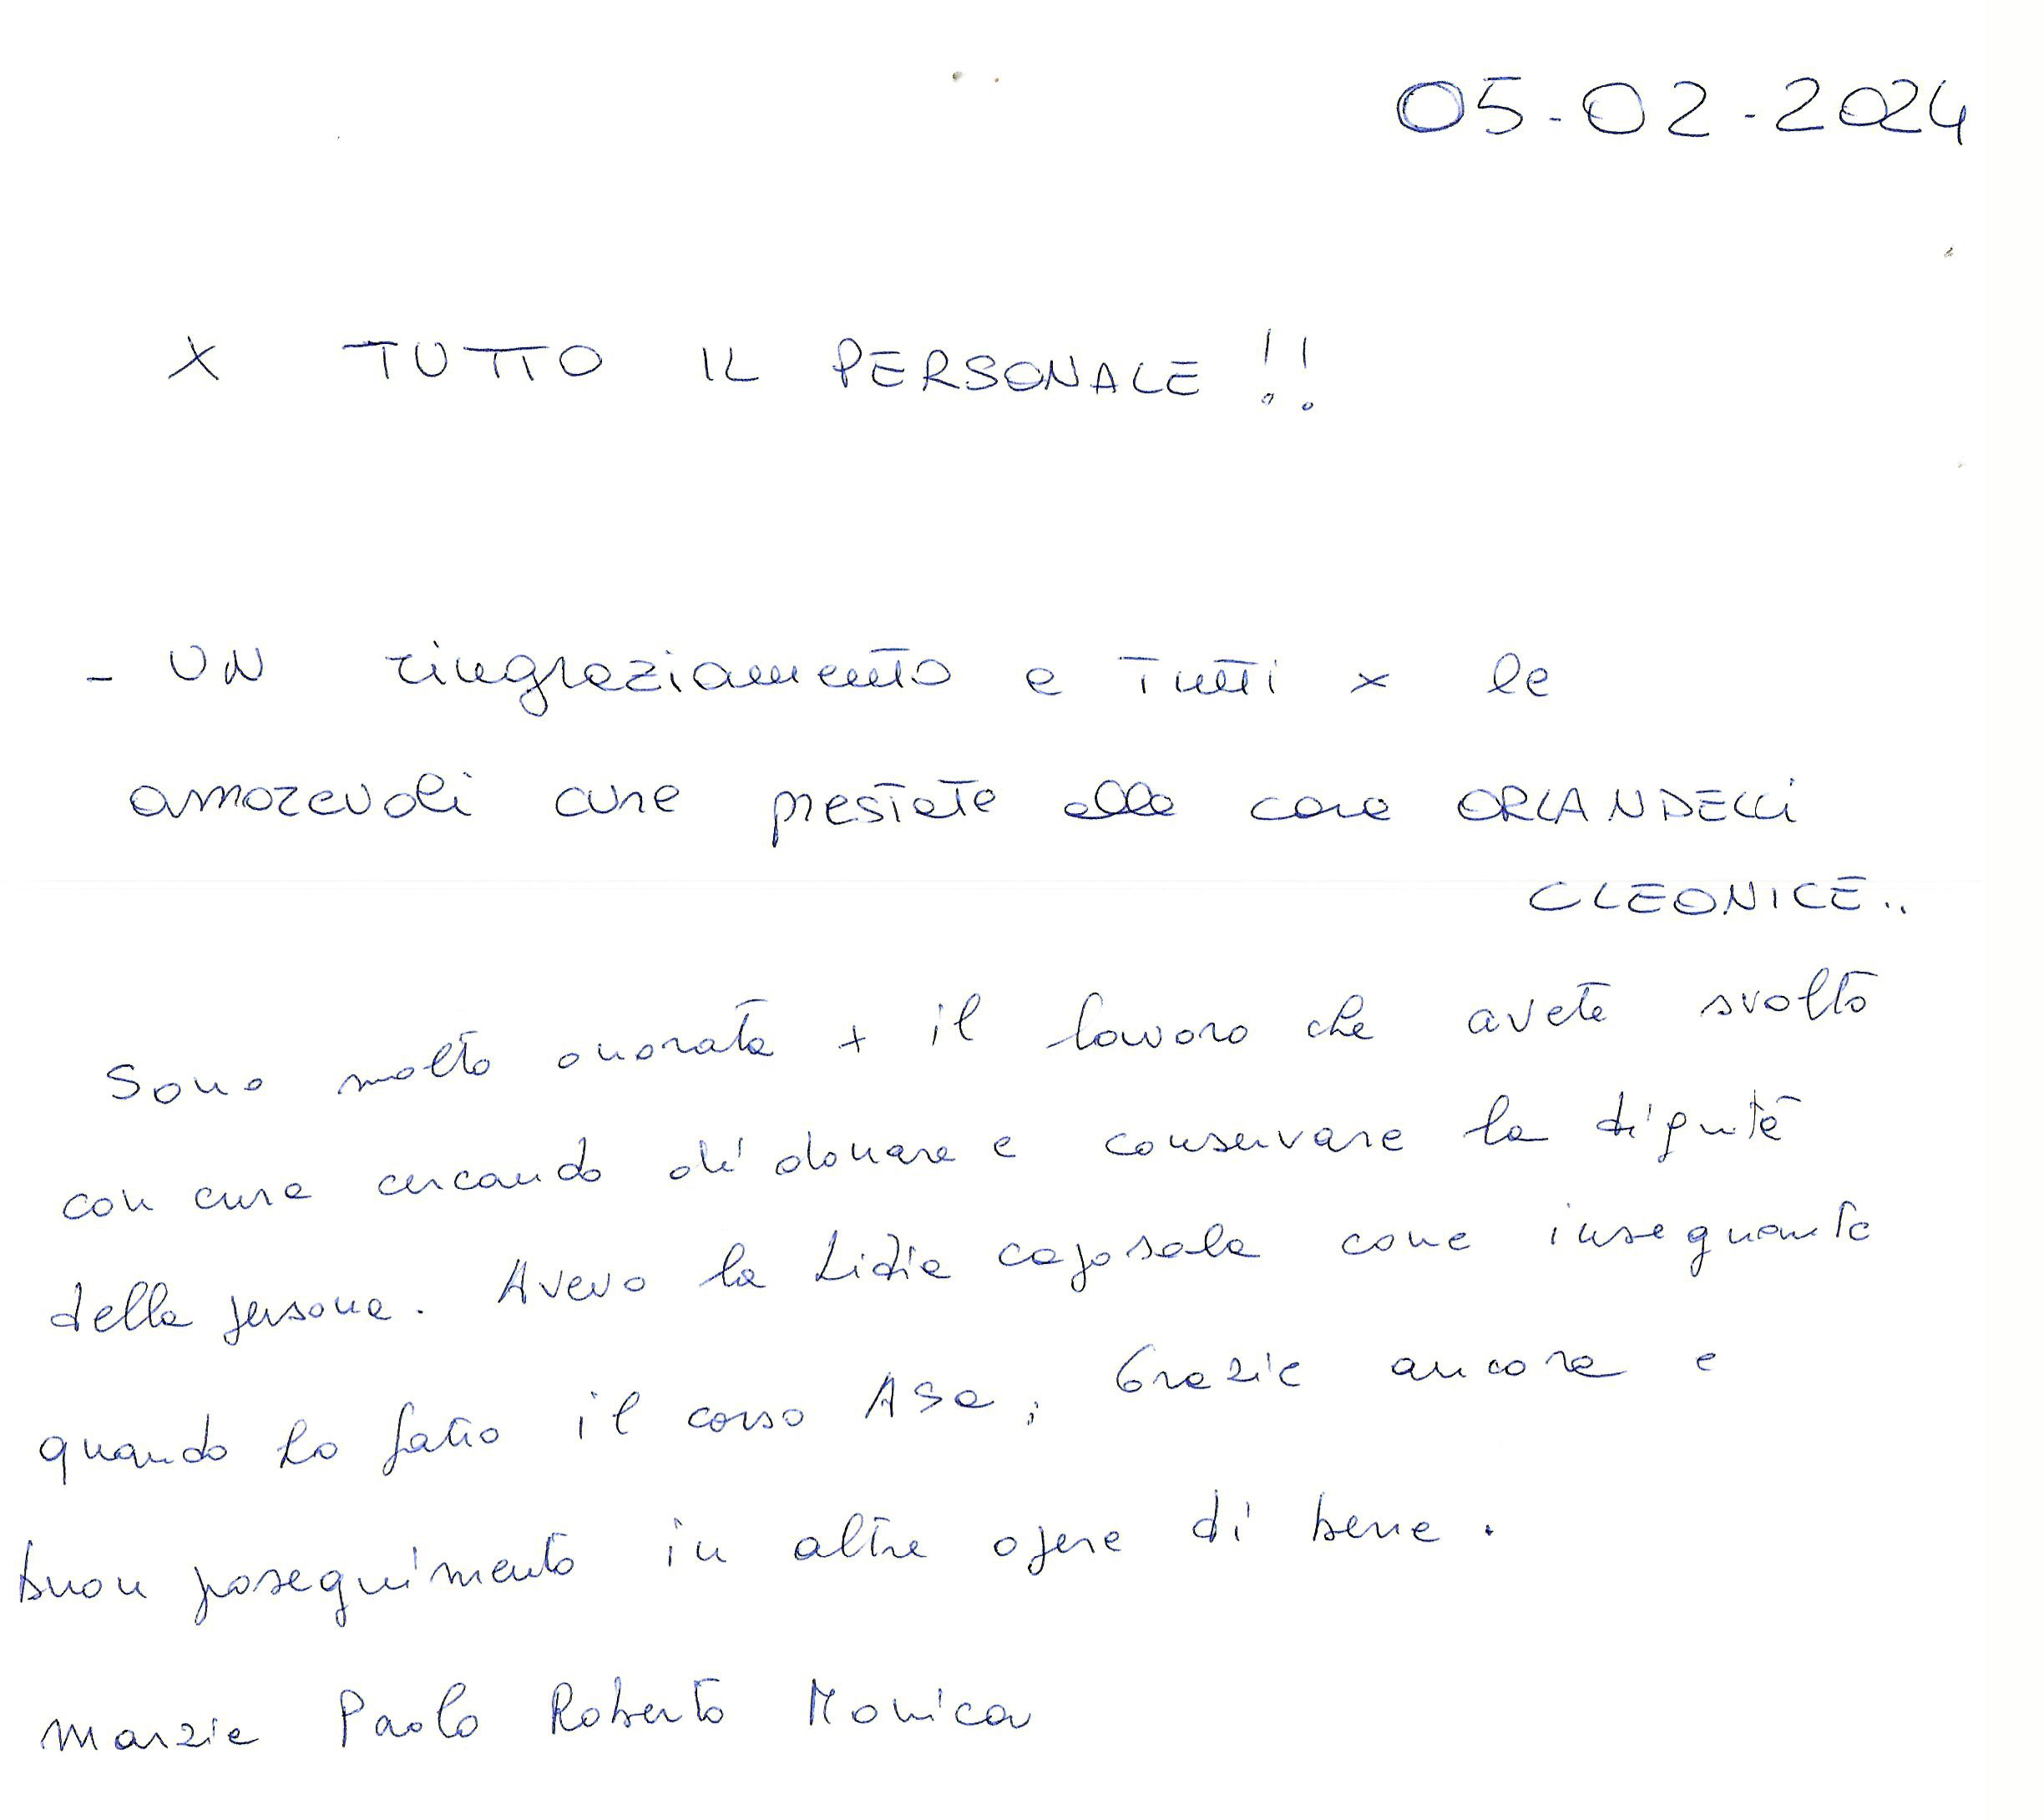 05-02-2024
X TUTTO IL PERSONALE !!
- UN ringraziamento a Tutti x le
amorevoli cure prestate alla cara ORLANDELLI
CLEONICE..
Sono molto onorata + il lavoro che avete svolto
con cura cercando di donare e conservare la dignità
della persona. Avevo la Lidia caposala come insegnante
quando ho fatto il corso ASA, Grazie ancora e
buon proseguimento in altre opere di bene.
Marzia Paolo Roberto Monica